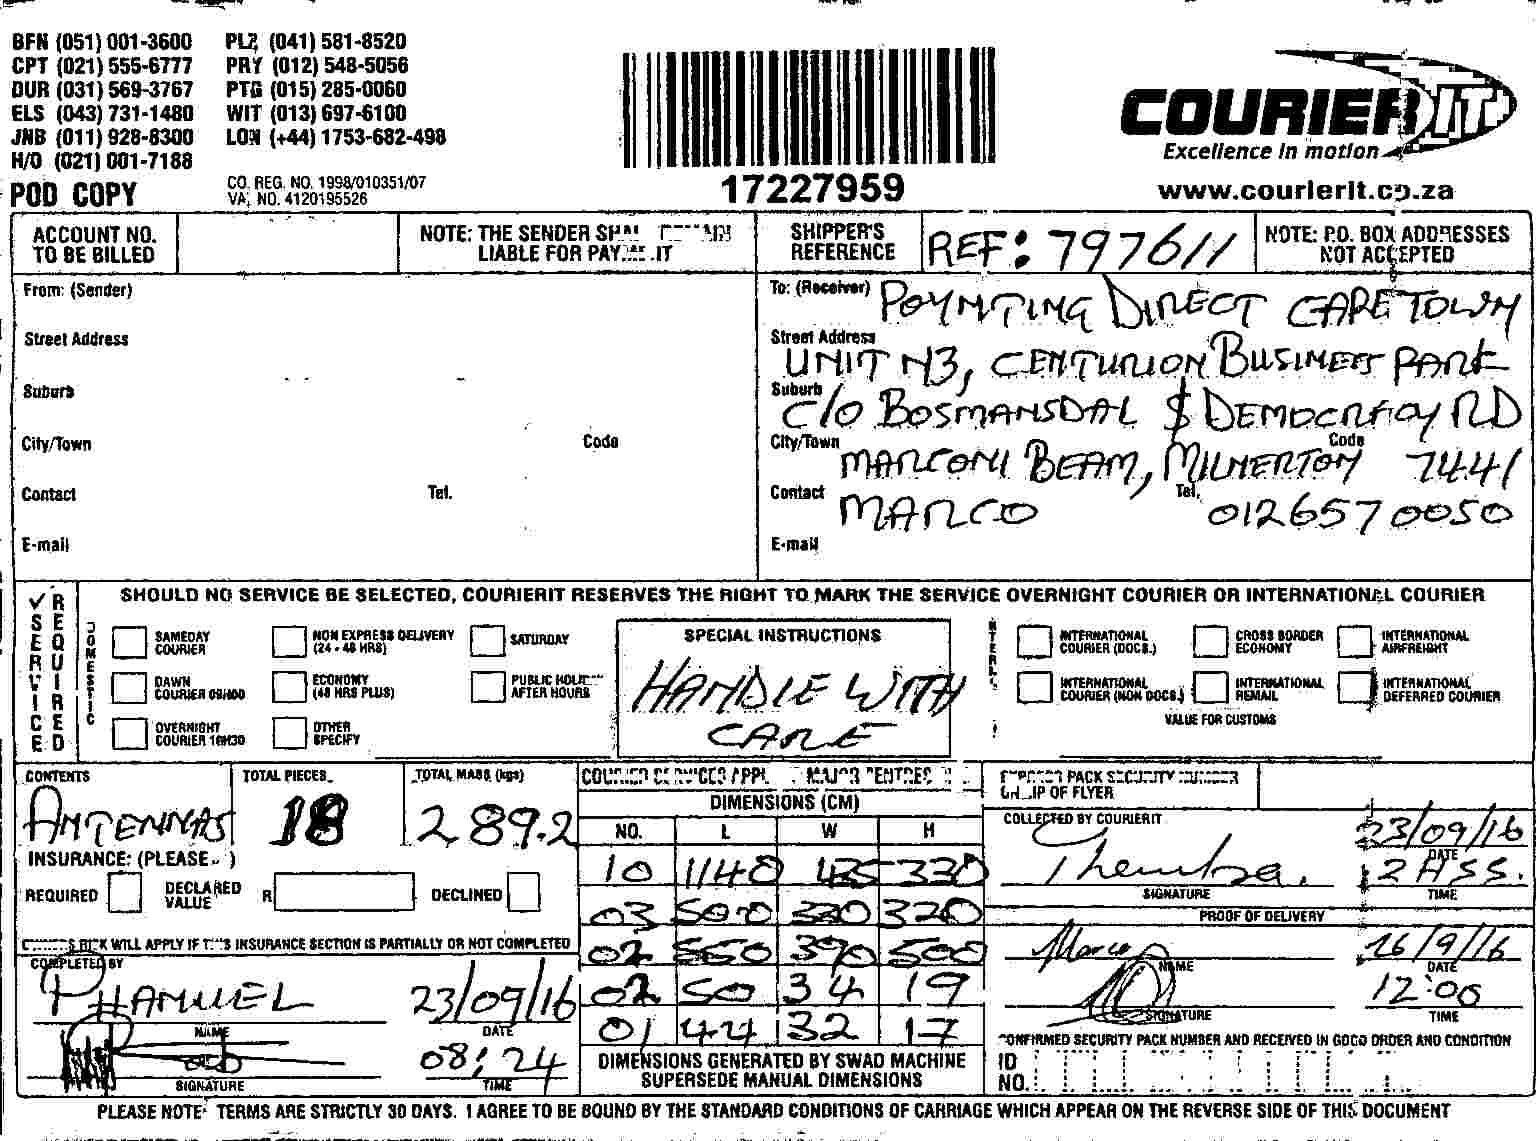 BFN (051) 001-3600 PLZ (041) 581-8520
CPT (021) 555-6777 PRY (012) 548-5056
DUR (031) 569-3767 PTG (015) 285-0060
ELS (043) 731-1480 WIT (013) 697-6100
JNB (011) 928-8300 LON (+44) 1753-682-498
H/O (021) 001-7188
POD COPY
CO. REG. NO. 1998/010351/07
VAT NO. 4120195526
17227959
COURIER IT
Excellence in motion
www.courierit.co.za
ACCOUNT NO. TO BE BILLED
NOTE: THE SENDER SHALL REMAIN
LIABLE FOR PAYMENT
SHIPPER'S REFERENCE
REF: 797611
NOTE: P.O. BOX ADDRESSES
NOT ACCEPTED
From: (Sender)
Street Address
Suburb
City/Town Code
Contact Tel.
E-mail
To: (Receiver) POYNTING DIRECT CAPE TOWN
Street Address UNIT N3, CENTURION BUSINESS PARK
Suburb C/O BOSMANSDAL & DEMOCRACY RD
City/Town MARCONI BEAM, MILNERTON Code 7441
Contact MARCO Tel. 0126570050
E-mail
SERVICE REQUIRED
SHOULD NO SERVICE BE SELECTED, COURIERIT RESERVES THE RIGHT TO MARK THE SERVICE OVERNIGHT COURIER OR INTERNATIONAL COURIER
DOMESTIC
SAMEDAY COURIER
NON EXPRESS DELIVERY (24 - 48 HRS)
SATURDAY
DAWN COURIER 09H00
ECONOMY (48 HRS PLUS)
PUBLIC HOLIDAY AFTER HOURS
OVERNIGHT COURIER 10H30
OTHER SPECIFY
SPECIAL INSTRUCTIONS
HANDLE WITH
CARE
INTERNATIONAL COURIER (DOCS.)
CROSS BORDER ECONOMY
INTERNATIONAL AIRFREIGHT
INTERNATIONAL COURIER (NON DOCS.)
INTERNATIONAL REMAIL
INTERNATIONAL DEFERRED COURIER
VALUE FOR CUSTOMS
CONTENTS TOTAL PIECES TOTAL MASS (kgs)
ANTENNAS 18 289.2
INSURANCE: (PLEASE )
REQUIRED DECLARED VALUE R DECLINED
RISK WILL APPLY IF THIS INSURANCE SECTION IS PARTIALLY OR NOT COMPLETED
COMPLETED BY
PHANUEL 23/09/16
NAME DATE
08:24
SIGNATURE TIME
DIMENSIONS (CM)
NO. L W H
10 1140 435 330
03 500 330 320
02 550 390 500
02 50 34 19
01 44 32 17
DIMENSIONS GENERATED BY SWAD MACHINE
SUPERSEDE MANUAL DIMENSIONS
EXPRESS PACK SECURITY NUMBER
OR ZIP OF FLYER
COLLECTED BY COURIERIT
Themba. 23/09/16
DATE
12H55.
SIGNATURE TIME
PROOF OF DELIVERY
Marco 26/9/16
NAME DATE
12:00
SIGNATURE TIME
CONFIRMED SECURITY PACK NUMBER AND RECEIVED IN GOOD ORDER AND CONDITION
ID NO.
PLEASE NOTE: TERMS ARE STRICTLY 30 DAYS. I AGREE TO BE BOUND BY THE STANDARD CONDITIONS OF CARRIAGE WHICH APPEAR ON THE REVERSE SIDE OF THIS DOCUMENT